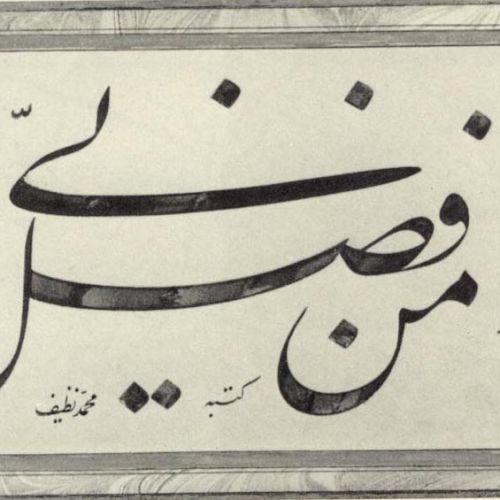 من فضل ربّي
كتبه محمّد نظيف